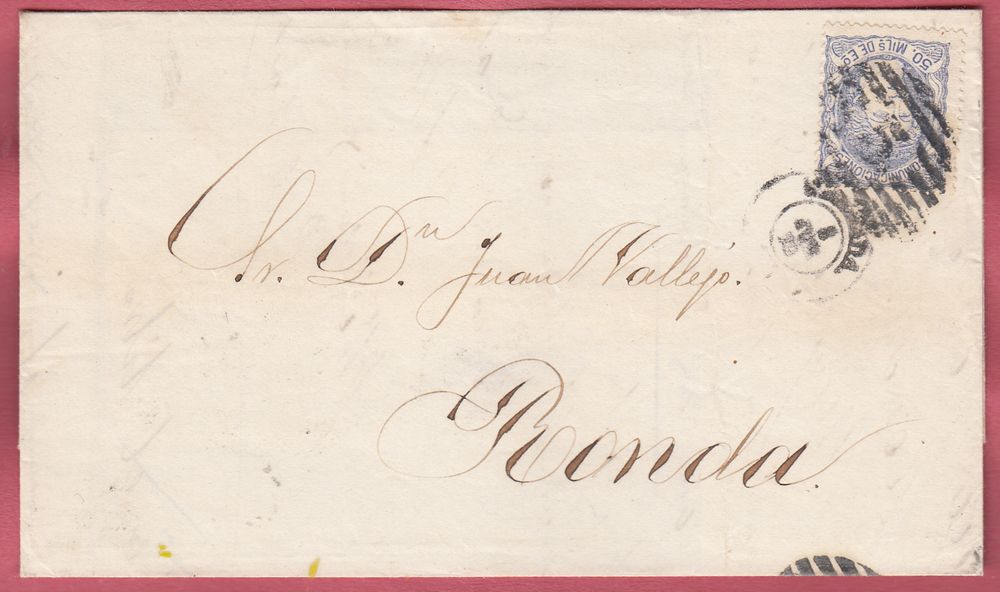 50. MILS DE Eo
Sr. Dn. Juan Vallejo.
Ronda.